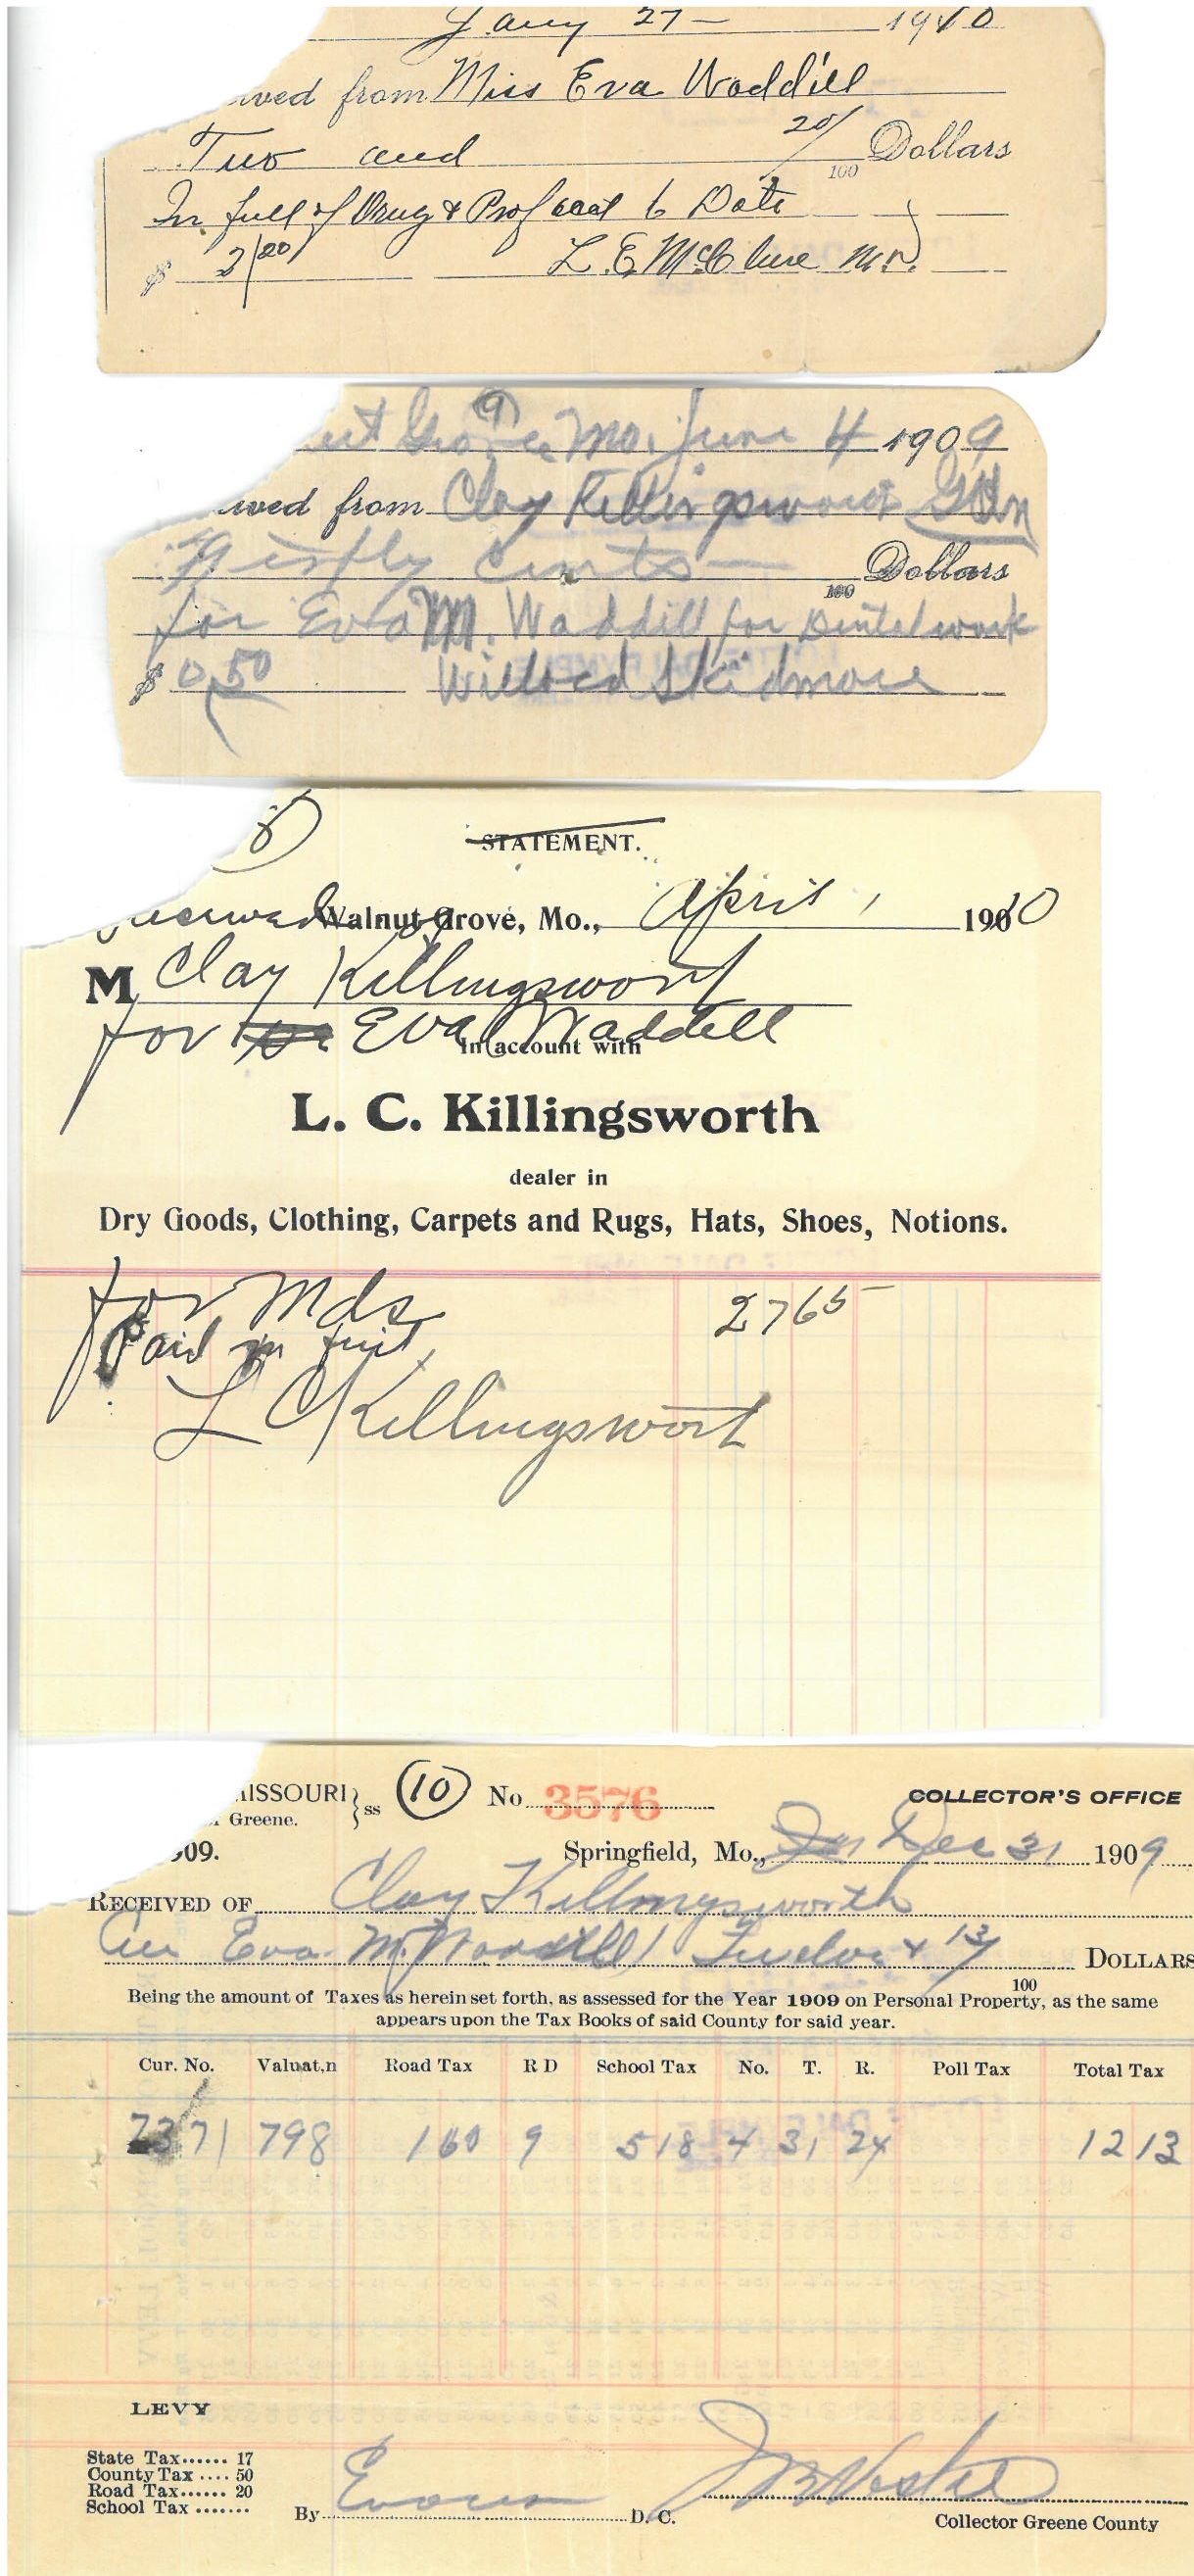 Jany 27 — 1910
ived from Miss Eva Waddill
Two and 20/100 Dollars
In full of Drug & Prof acct to Date
$ 2/20 L. E. McClure M.D.
9
ut Grove, Mo. June 4 1909
ived from Clay Killingsworth
Fifty cents — 100 Dollars
for Eva M. Waddill for Dental work
$ 0.50 Skidmore
8
STATEMENT.
Walnut Grove, Mo., April 1 1910
M Clay Killingsworth
for Eva Waddell
In account with
L. C. Killingsworth
dealer in
Dry Goods, Clothing, Carpets and Rugs, Hats, Shoes, Notions.
for Mds 2765
Paid in full
L C Killingswort
MISSOURI } ss 10 No. 3576 COLLECTOR'S OFFICE
Greene.
09. Springfield, Mo., Dec 31 1909
RECEIVED OF Clay Killingsworth
Eva M. Waddill Twelve & 13/100 DOLLARS
Being the amount of Taxes as herein set forth, as assessed for the Year 1909 on Personal Property, as the same
appears upon the Tax Books of said County for said year.
Cur. No. Valuat,n Road Tax R D School Tax No. T. R. Poll Tax Total Tax
2371 798 160 9 518 4 31 24 12 13
LEVY
State Tax...... 17
County Tax .... 50
Road Tax...... 20
School Tax .......
By Evans D. C.
Collector Greene County